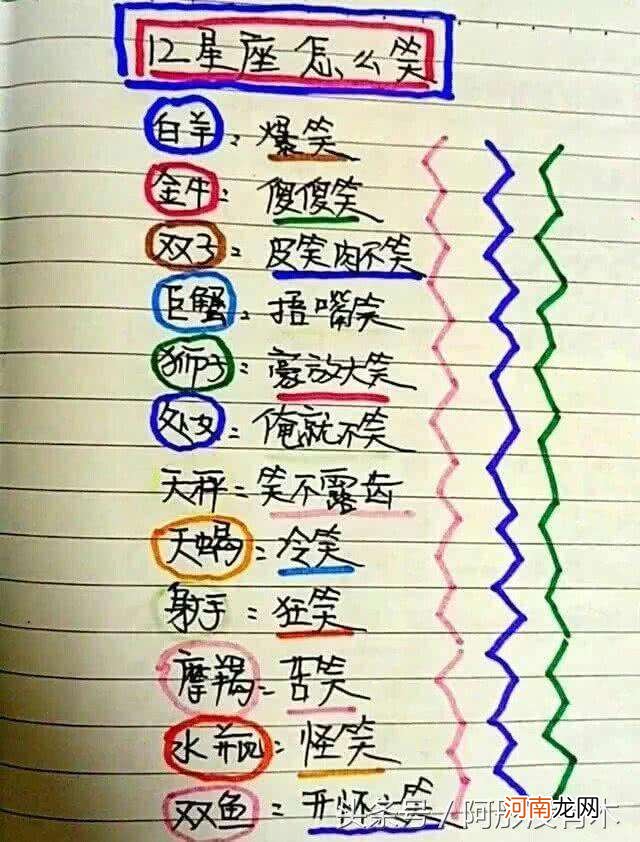 12星座怎么笑
白羊：爆笑
金牛：傻傻笑
双子：皮笑肉不笑
巨蟹：捂嘴笑
狮子：豪放大笑
处女：俺就不笑
天秤：笑不露齿
天蝎：冷笑
射手：狂笑
摩羯：苦笑
水瓶：怪笑
双鱼：开怀笑
头条号／阿彤没有木
河南龙网